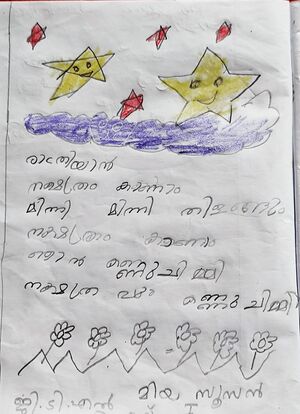 രാത്രിയിൽ
നക്ഷത്രം കാണാം
മിന്നി മിന്നി തിളങ്ങും
നക്ഷത്രം കാണാം
ഞാൻ കണ്ണുചിമ്മി
നക്ഷത്ര വും കണ്ണുചിമ്മി
ജി.ടി.എൽ മിയ സൂസൻ